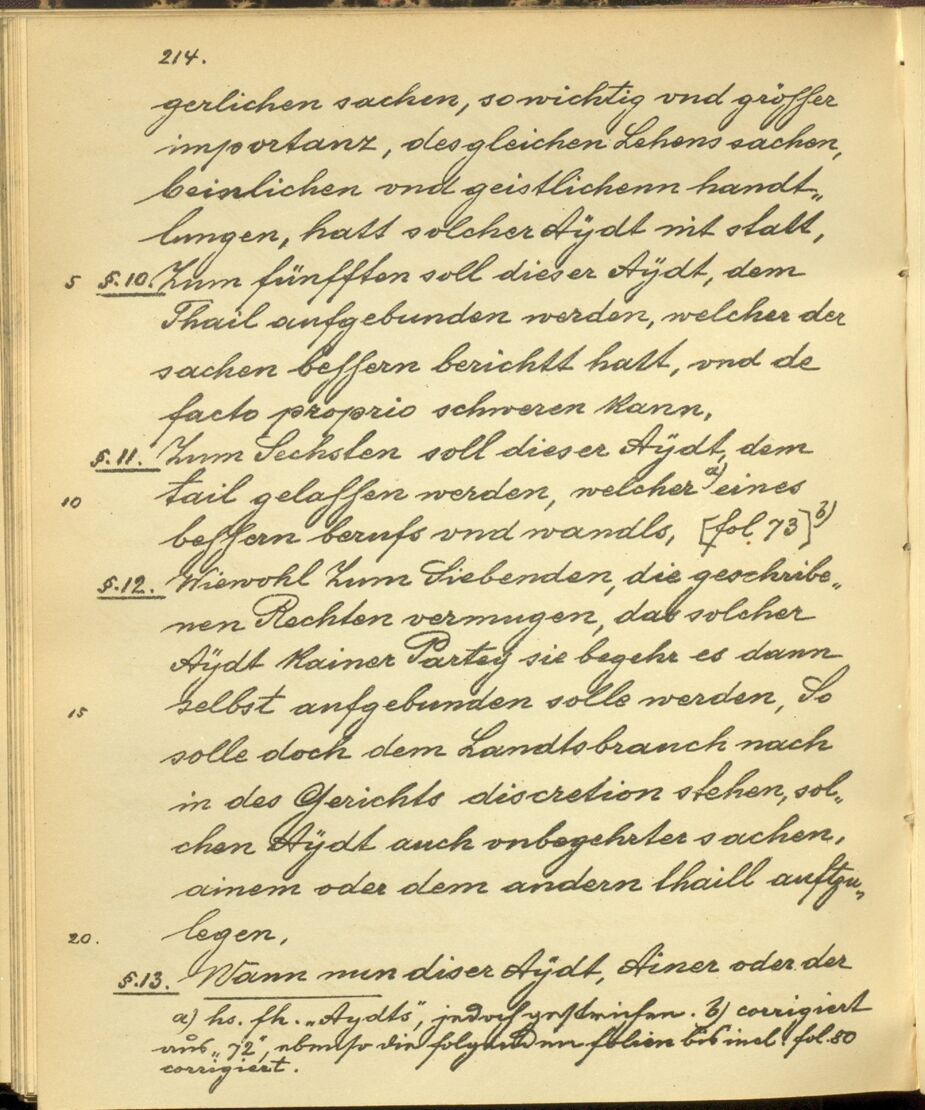 214.
gerlichen sachen, so wichtig vnd gröſſer
importanz, desgleichen Lehens sachen,
beinlichen vnd geistlichenn handt„
lungen, hatt solcher Aÿdt nit statt,
5 §.10. Zum fünfften soll dieser Aÿdt, dem
Thail aufgebunden werden, welcher der
sachen beſſern berichtt hatt, vnd de
facto proprio schweren kann,
§.11. Zum Sechsten soll dieser Aÿdt, dem
10 tail gelaſſen werden, welcher a) eines
beſſern berufs vnd wandls, [fol 73] b)
§.12. Wiewohl Zum Siebenden, die geschribe„
nen Rechten vermugen, das solcher
Aÿdt kainer Partey sie begehr es dann
15 selbst aufgebunden solle werden, So
solle doch dem Landtsbrauch nach
in des Gerichts discretion stehen, sol„
chen Aÿdt auch vnbegehrter sachen,
ainem oder dem andern thaill auftzu„
20. legen.
§.13. Wann nun diser Aÿdt, Ainer oder der
a) hs. fh. „Aydts", jedoch gestrichen. b) corrigiert
aus „72", ebenso die folgenden folien bis incl. fol. 80
corrigiert.